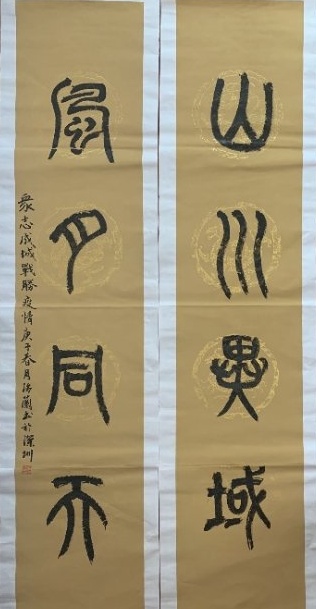 山川異域
風月同天
衆志成城戰勝疫情庚子春月海蘭书於深圳